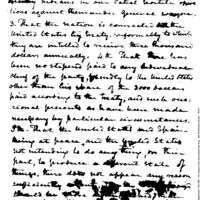 against them are general
3. That the nation is connected with the
United States by treaty, conformably to which
they are entitled to receive three thousand
dollars annually. 4. That there has
been no stipend paid to any individual
of the party, friendly to the United States
other than his share of the 3000 dollars
paid according to the treaty, and such occa-
sional presents as have been made
necessary by particular circumstances.
5. That the United States and Spain
being at peace, and the United States
not intending to do any thing on their
part, to produce a different state of
things, there does not appear any reason
sufficiently
should be